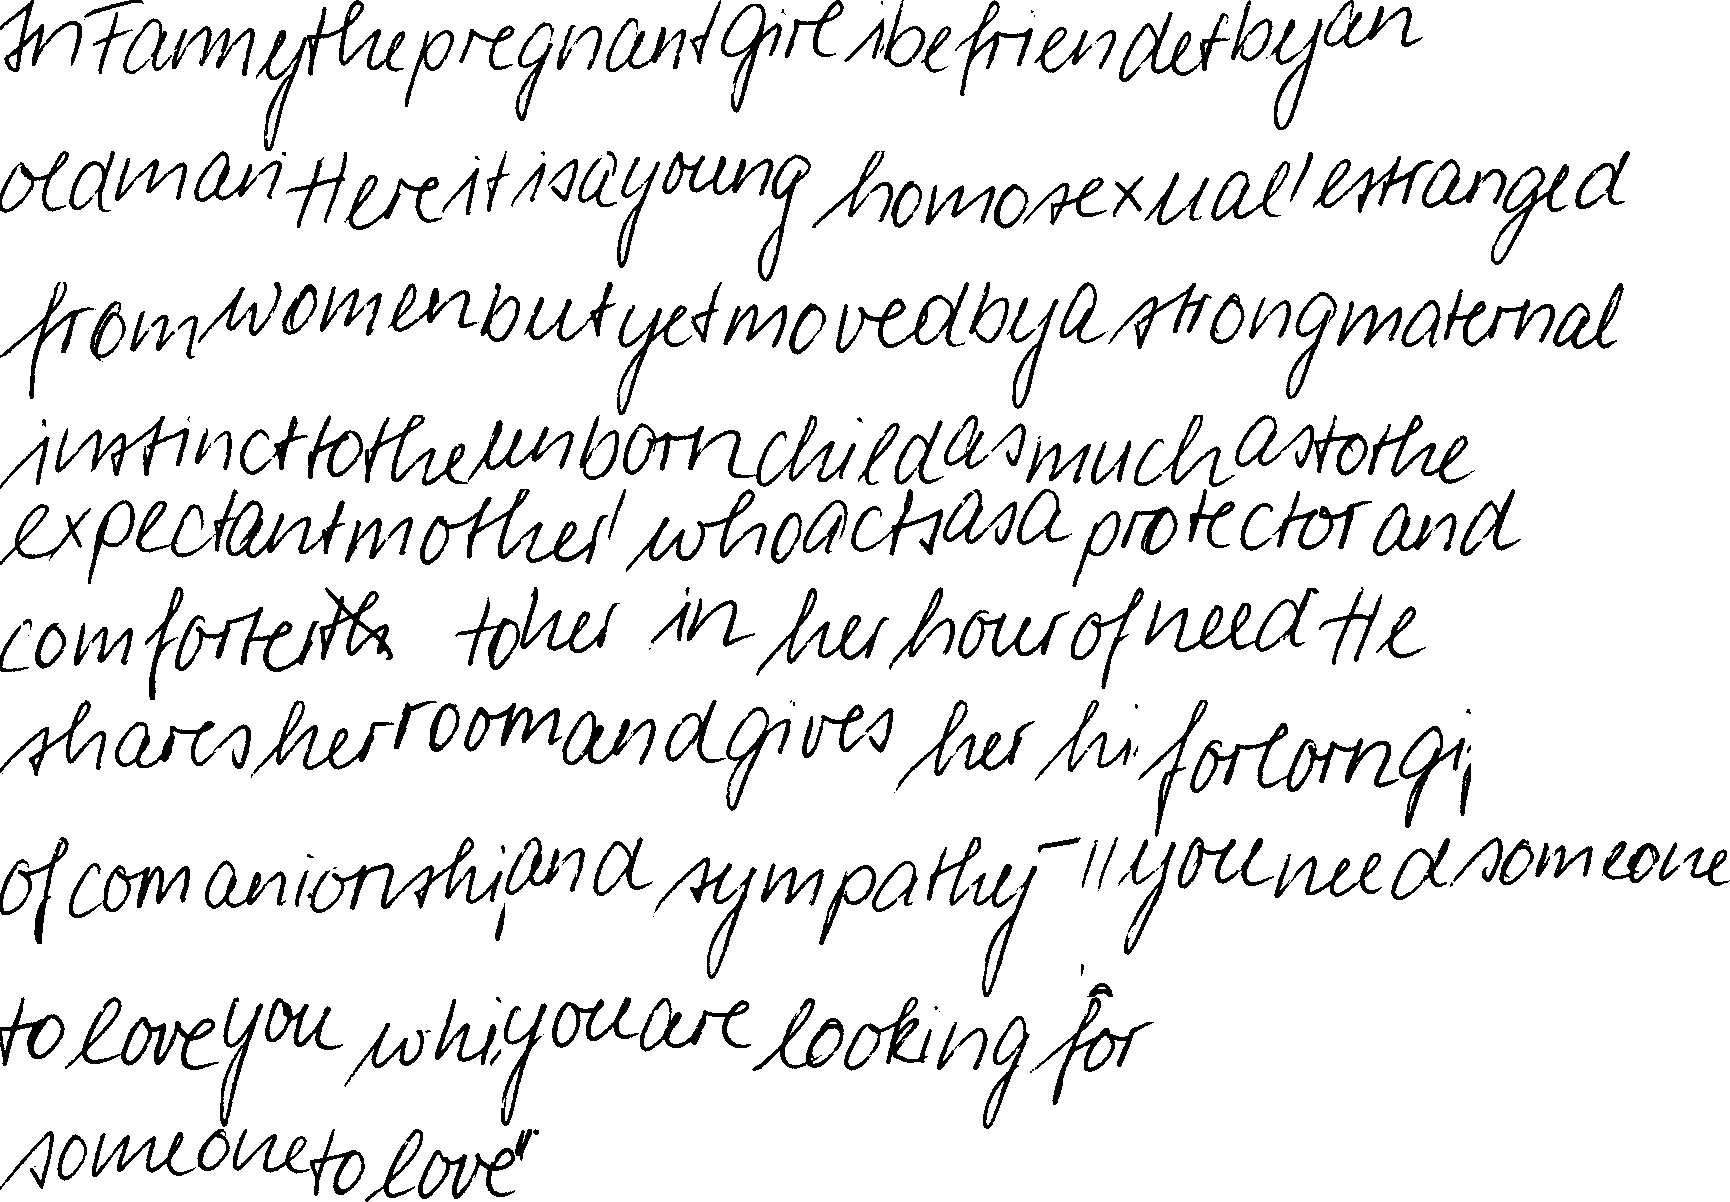 In Fanny the pregnant girl i befriendet by an
old man Here it is a young homosexual' estranged
from women but yet moved by a strong maternal
instinct to the unborn child as much as to the
expectant mother' who acts as a protector and
comforter to her in her hour of need He
shares her room and gives her hi forlorn gi,
of comanionshi, and sympathy - "you need someone
to love you whi, you are looking for
someone to love"